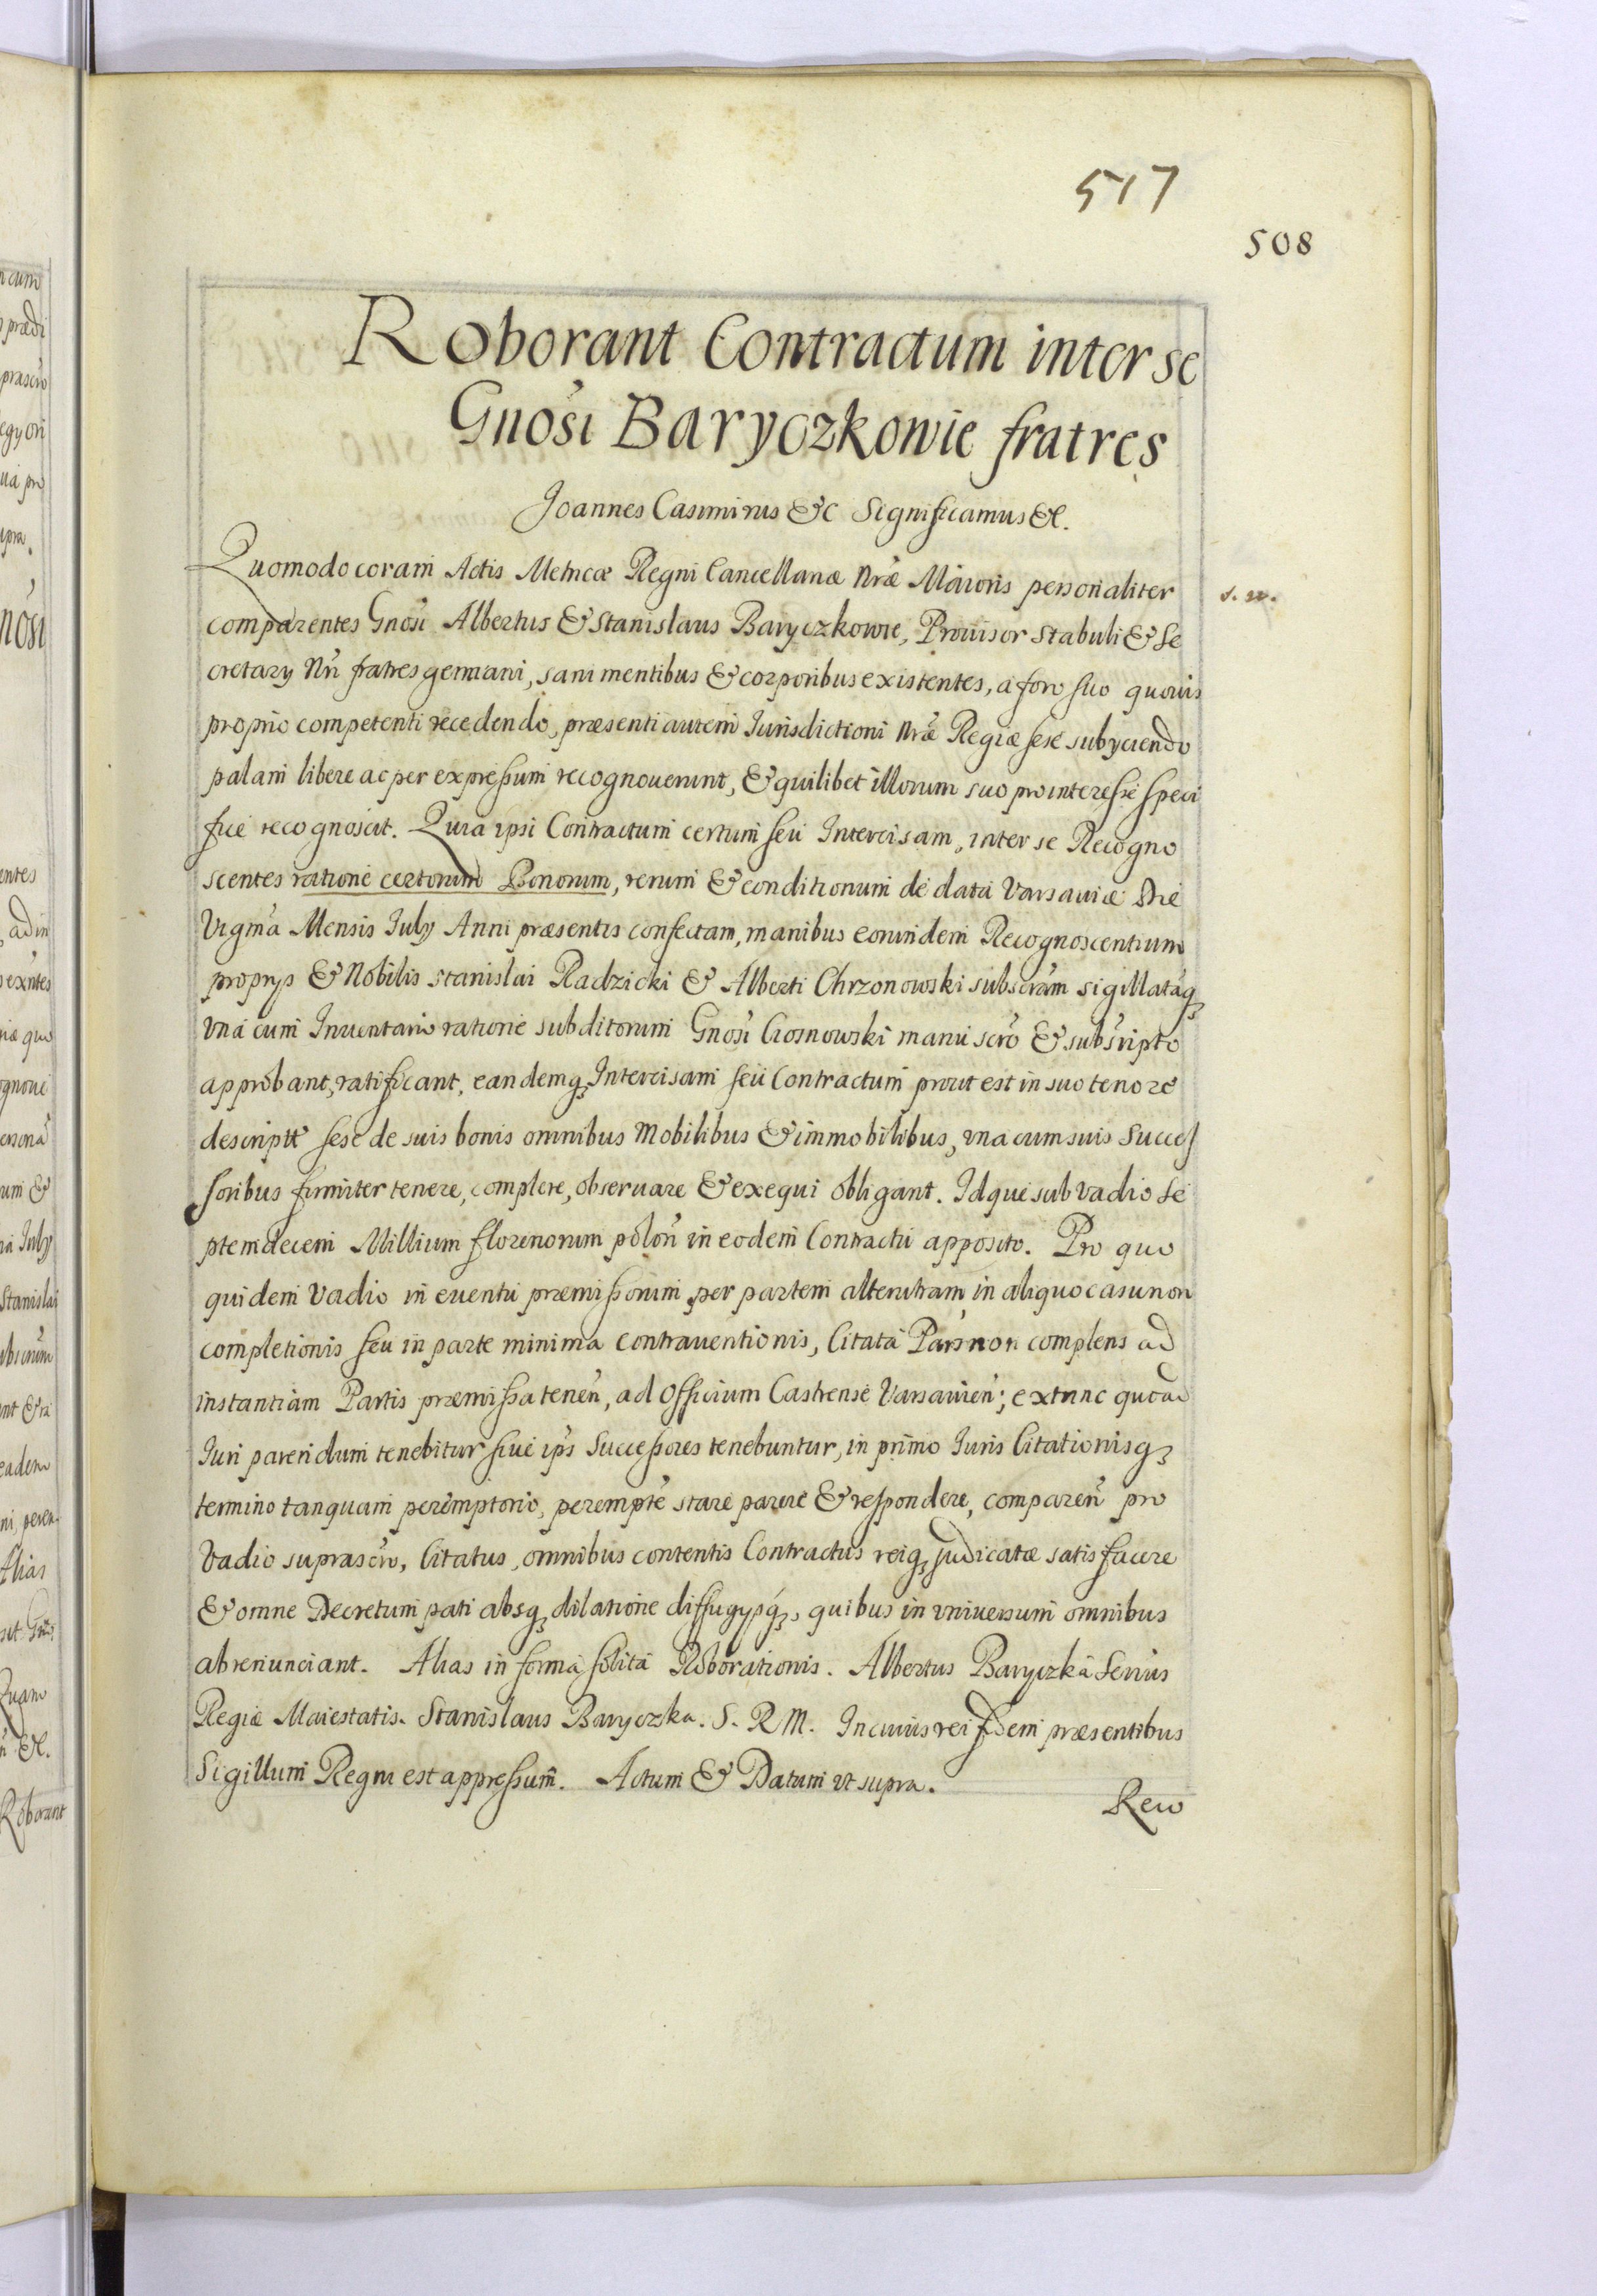 517
508
Roborant Contractum inter se
Gnosi Baryczkowie fratres
Joannes Casimirus &c Significamus &c.
Quomodo coram Actis Metricæ Regni Cancellariæ Nræ Maioris personaliter
comparentes Gnosi Albertus & Stanislaus Baryczkowie, Prouisor Stabuli & Se
cretary Nri fratres germani, sani mentibus & corporibus existentes, a foro suo quouis
proprio competenti recedendo, præsenti autem Jurisdictioni Nræ Regiæ sese subyciendo
palam libere ac per expressum recognouerunt, & quilibet illorum suo pro interesse speci
fice recognoscit. Quia ipsi Contractum certum seu Intercisam, inter se Recogno
scentes ratione certorum Bonorum, rerum & conditionum de data Varsauiæ Die
Vigma Mensis July Anni præsentis confectam, manibus eorundem Recognoscentium
proprys & Nobilis Stanislai Radzicki & Alberti Chrzonowski subscram sigillatāq
vna cum Inuentario ratione subditorum Gnosi Crosnowski manu scro & subscripto
approbant, ratificant, eandemq Intercisam seu Contractum prout est in suo tenore
descript sese de suis bonis omnibus Mobilibus & immobilibus, vna cum suis Succes
soribus firmiter tenere, complere, obseruare & exequi obligant. Idque sub vadio Se
ptemdecem Millium florenorum polon in eodem Contractu apposito. Pro quo
quidem Vadio in euentu præmissorum per partem alterutram in aliquo casu non
completionis seu in parte minima contrauentionis, Citata Pars non complens ad
instantiam Partis præmissa tenen, ad Officium Castrense Varsauien; extunc quoad
Juri parendum tenebitur siue ips Successores tenebuntur, in primo Juris Citationisq
termino tanquam peremptorio, perempte stare parere & respondere, comparen pro
Vadio suprascro, Citatus, omnibus contentis Contractus reiq judicatæ satisfacere
& omne Decretum pati absq dilatione diffugypq, quibus in vniuersum omnibus
abrenunciant. Alias in forma solita Roborationis. Albertus Baryczka Seruus
Regiæ Maiestatis. Stanislaus Baryczka. S. R M. In cuius rei fidem præsentibus
Sigillum Regni est appressum. Actum & Datum vt supra.